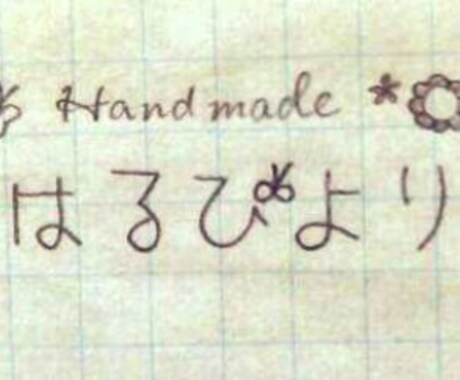 Handmade *
はるびより